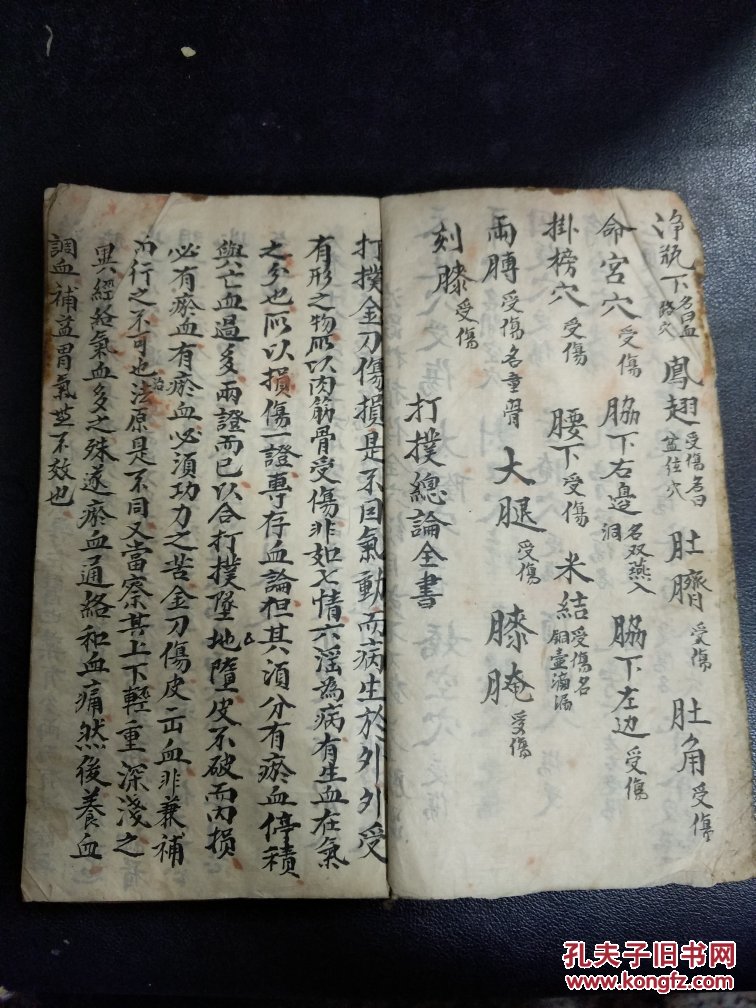 淨瓶下名曰血路穴 鳳翅受傷名曰盆住穴 肚臍受傷 肚角受傷
命宮穴受傷 脇下右邊名双燕入洞 脇下左边受傷
掛榜穴受傷 腰下受傷 米結受傷名銅壷滴漏
兩膊受傷名童骨 大腿受傷 膝腌受傷
刻膝受傷
打撲總論全書
打撲金刀傷損是不因氣動而病生於外外受
有形之物所以肉筋骨受傷非如七情六淫為病有生血在氣
之分也所以損傷一證專存血論但其須分有瘀血停積
與亡血過多兩證而已以合打撲墜地墮皮不破而內損
必有瘀血有瘀血必須功力之苦金刀傷皮出血非兼補
而行之不可也治法原是不同又當察其上下輕重深淺之
異經絡氣血多之殊遂瘀血通絡和血痛然後養血
調血補益胃氣無不效也
孔夫子旧书网
www.kongfz.com